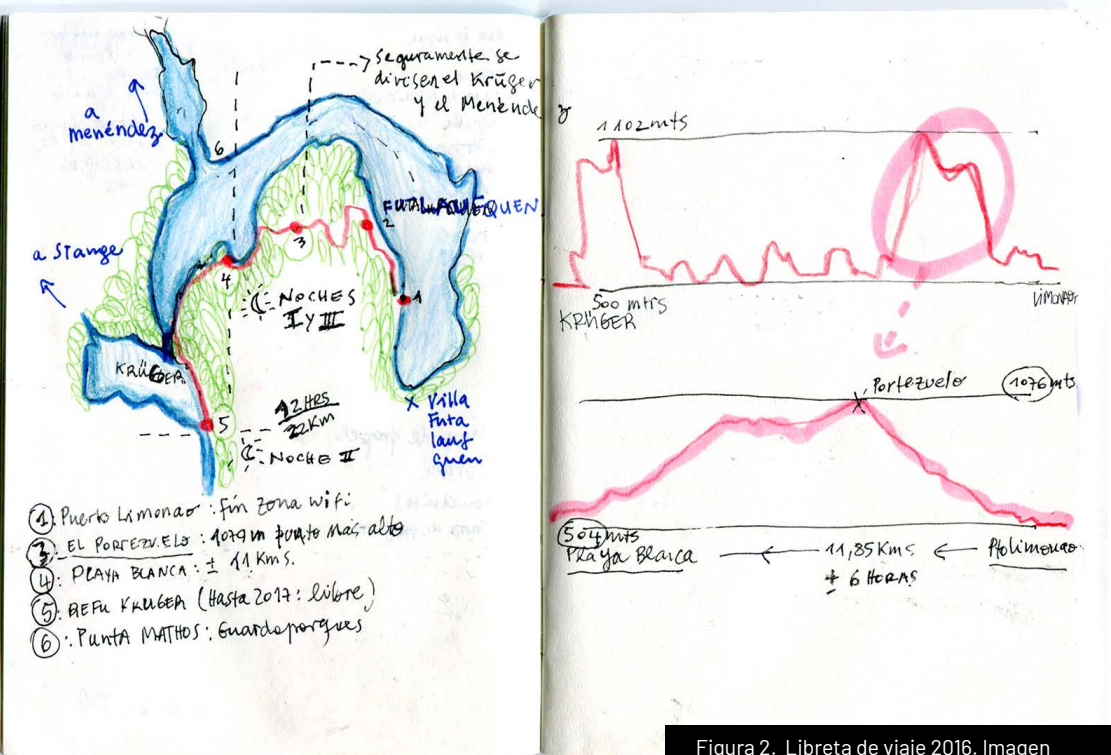 Seguramente se
divisen el Krüger
y el Menéndez
a
menéndez
6
FUTALAUFQUEN
2
a Stange
3
4
1
NOCHES
I Y III
KRÜGER
12 HRS
22 Km
5
NOCHE II
X Villa
Futa
lauf
quen
①: Puerto Limonao: Fin zona wifi
③: EL PORTEZUELO: 1079m punto más alto
④: PLAYA BLANCA: ± 11 KMS.
⑤: REFU KRUGER (Hasta 2017: libre)
⑥: Punta MATHOS: Guardaparques
1102 mts
500 mtrs
KRÜGER
LIMONAO
Portezuelo
1076 mts
504 mts
Playa Blanca
11,85 Kms
Pto limonao
± 6 HORAS
Figura 2. Libreta de viaje 2016. Imagen